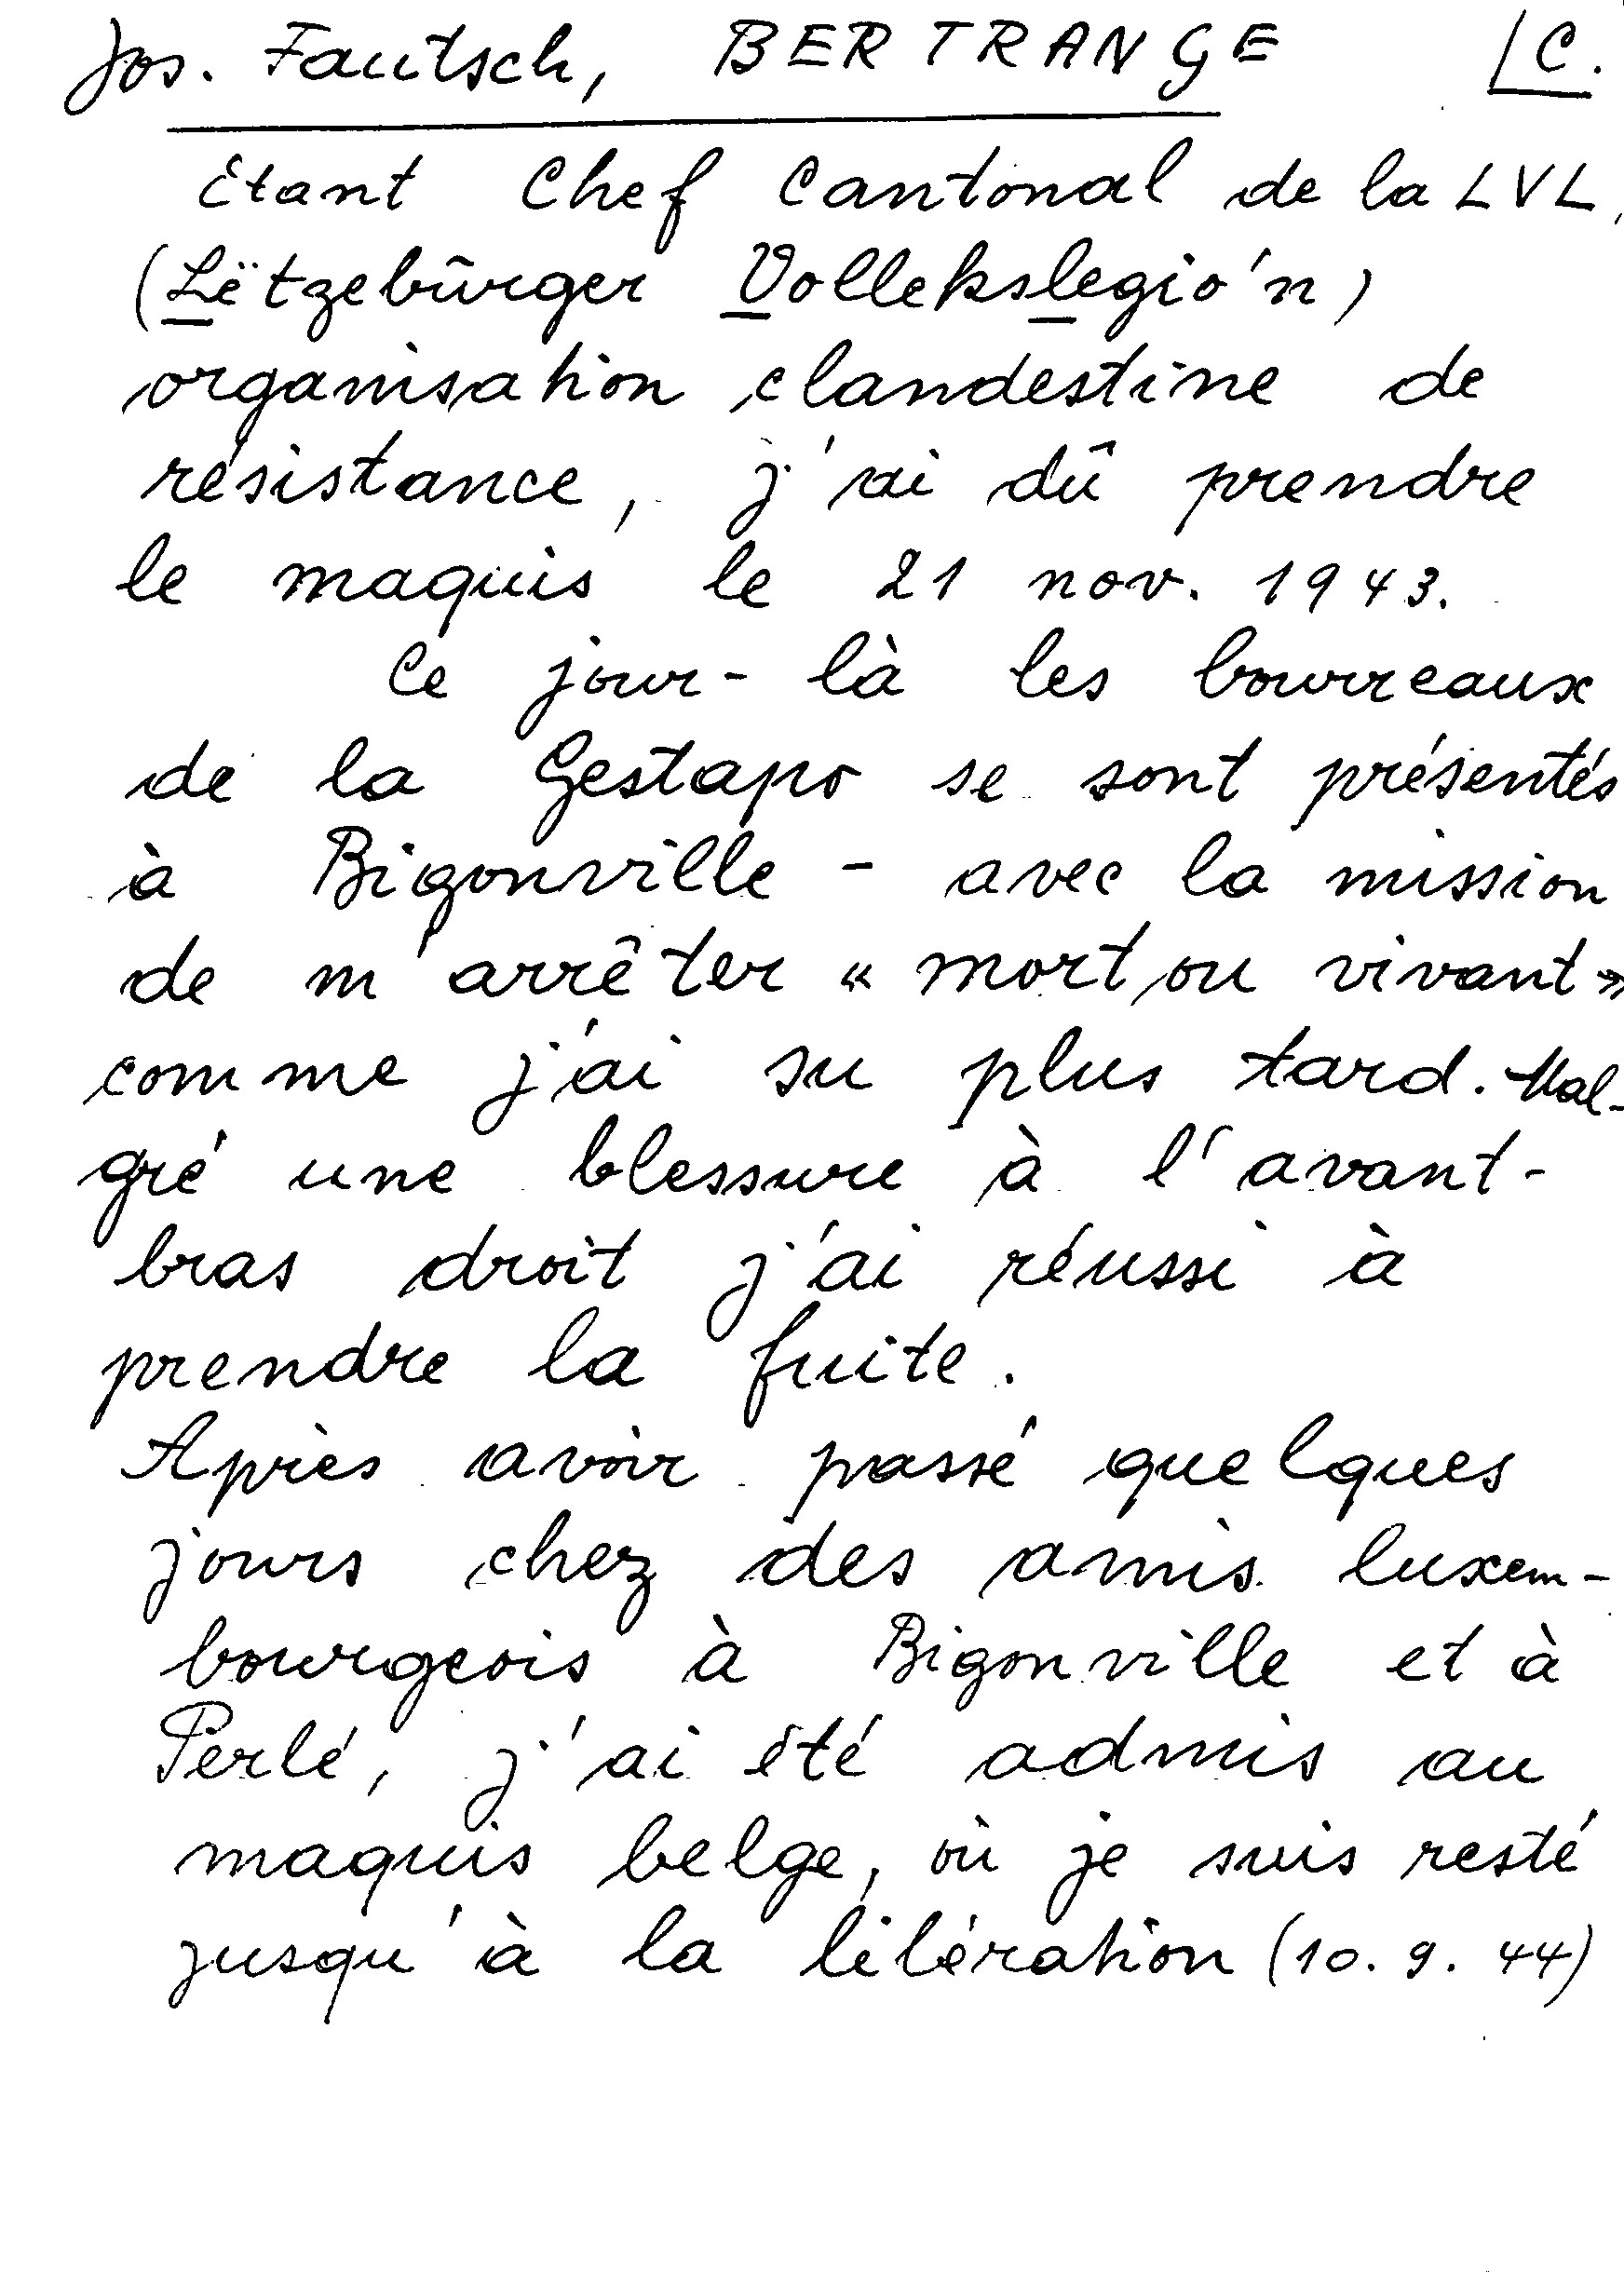 Jos. Fautsch, BERTRANGE C.
Etant Chef Cantonal de la LVL,
(Lëtzebûrger Vollekslegio'n)
organisation clandestine de
résistance, j'ai dû prendre
le maquis le 21 nov. 1943.
Ce jour-là les bourreaux
de la Gestapo se sont présentés
à Bigonville - avec la mission
de m'arrêter « mort ou vivant »
comme j'ai su plus tard. Mal-
gré une blessure à l'avant-
bras droit j'ai réussi à
prendre la fuite.
Après avoir passé quelques
jours chez des amis luxem-
bourgeois à Bigonville et à
Perlé, j'ai été admis au
maquis belge, où je suis resté
jusqu'à la libération (10. 9. 44)